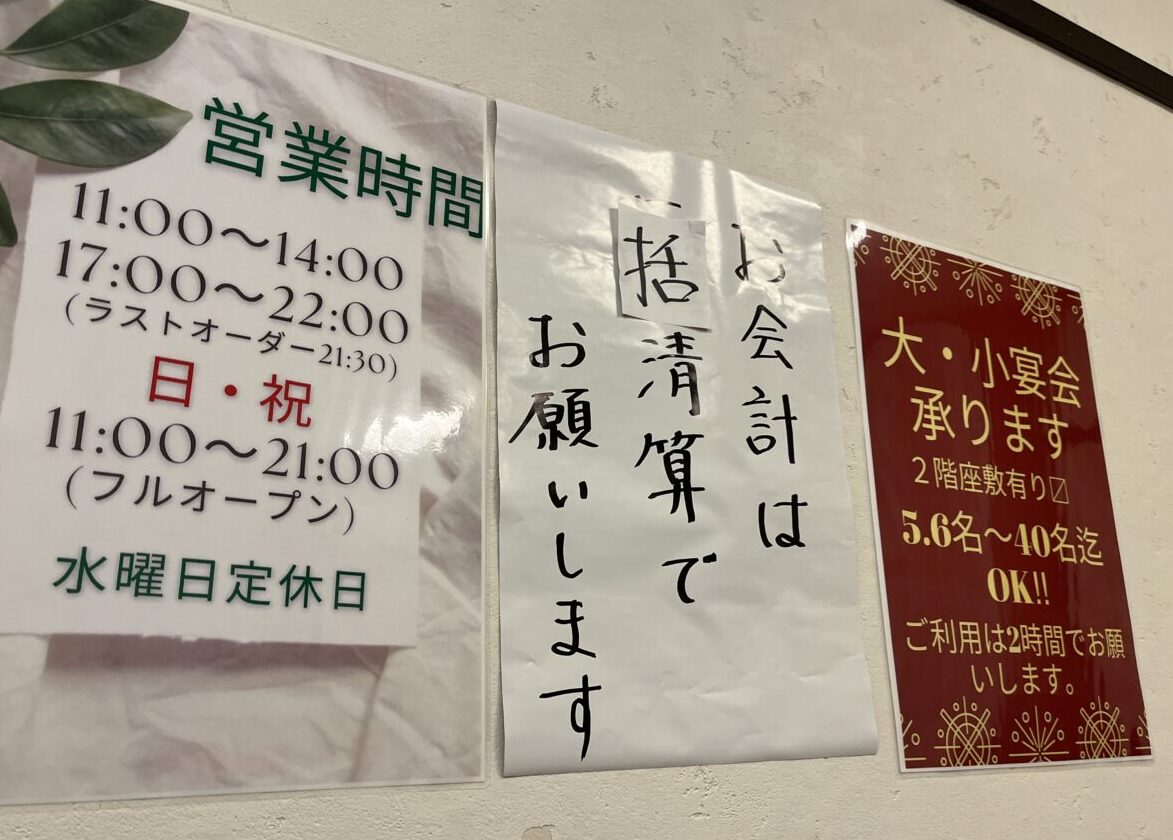 営業時間
11:00〜14:00
17:00〜22:00
(ラストオーダー21:30)
日・祝
11:00〜21:00
(フルオープン)
水曜日定休日
お会計は
一括清算で
お願いします
大・小宴会
承ります
２階座敷有り〼
5.6名〜40名迄
OK!!
ご利用は2時間でお願
いします。